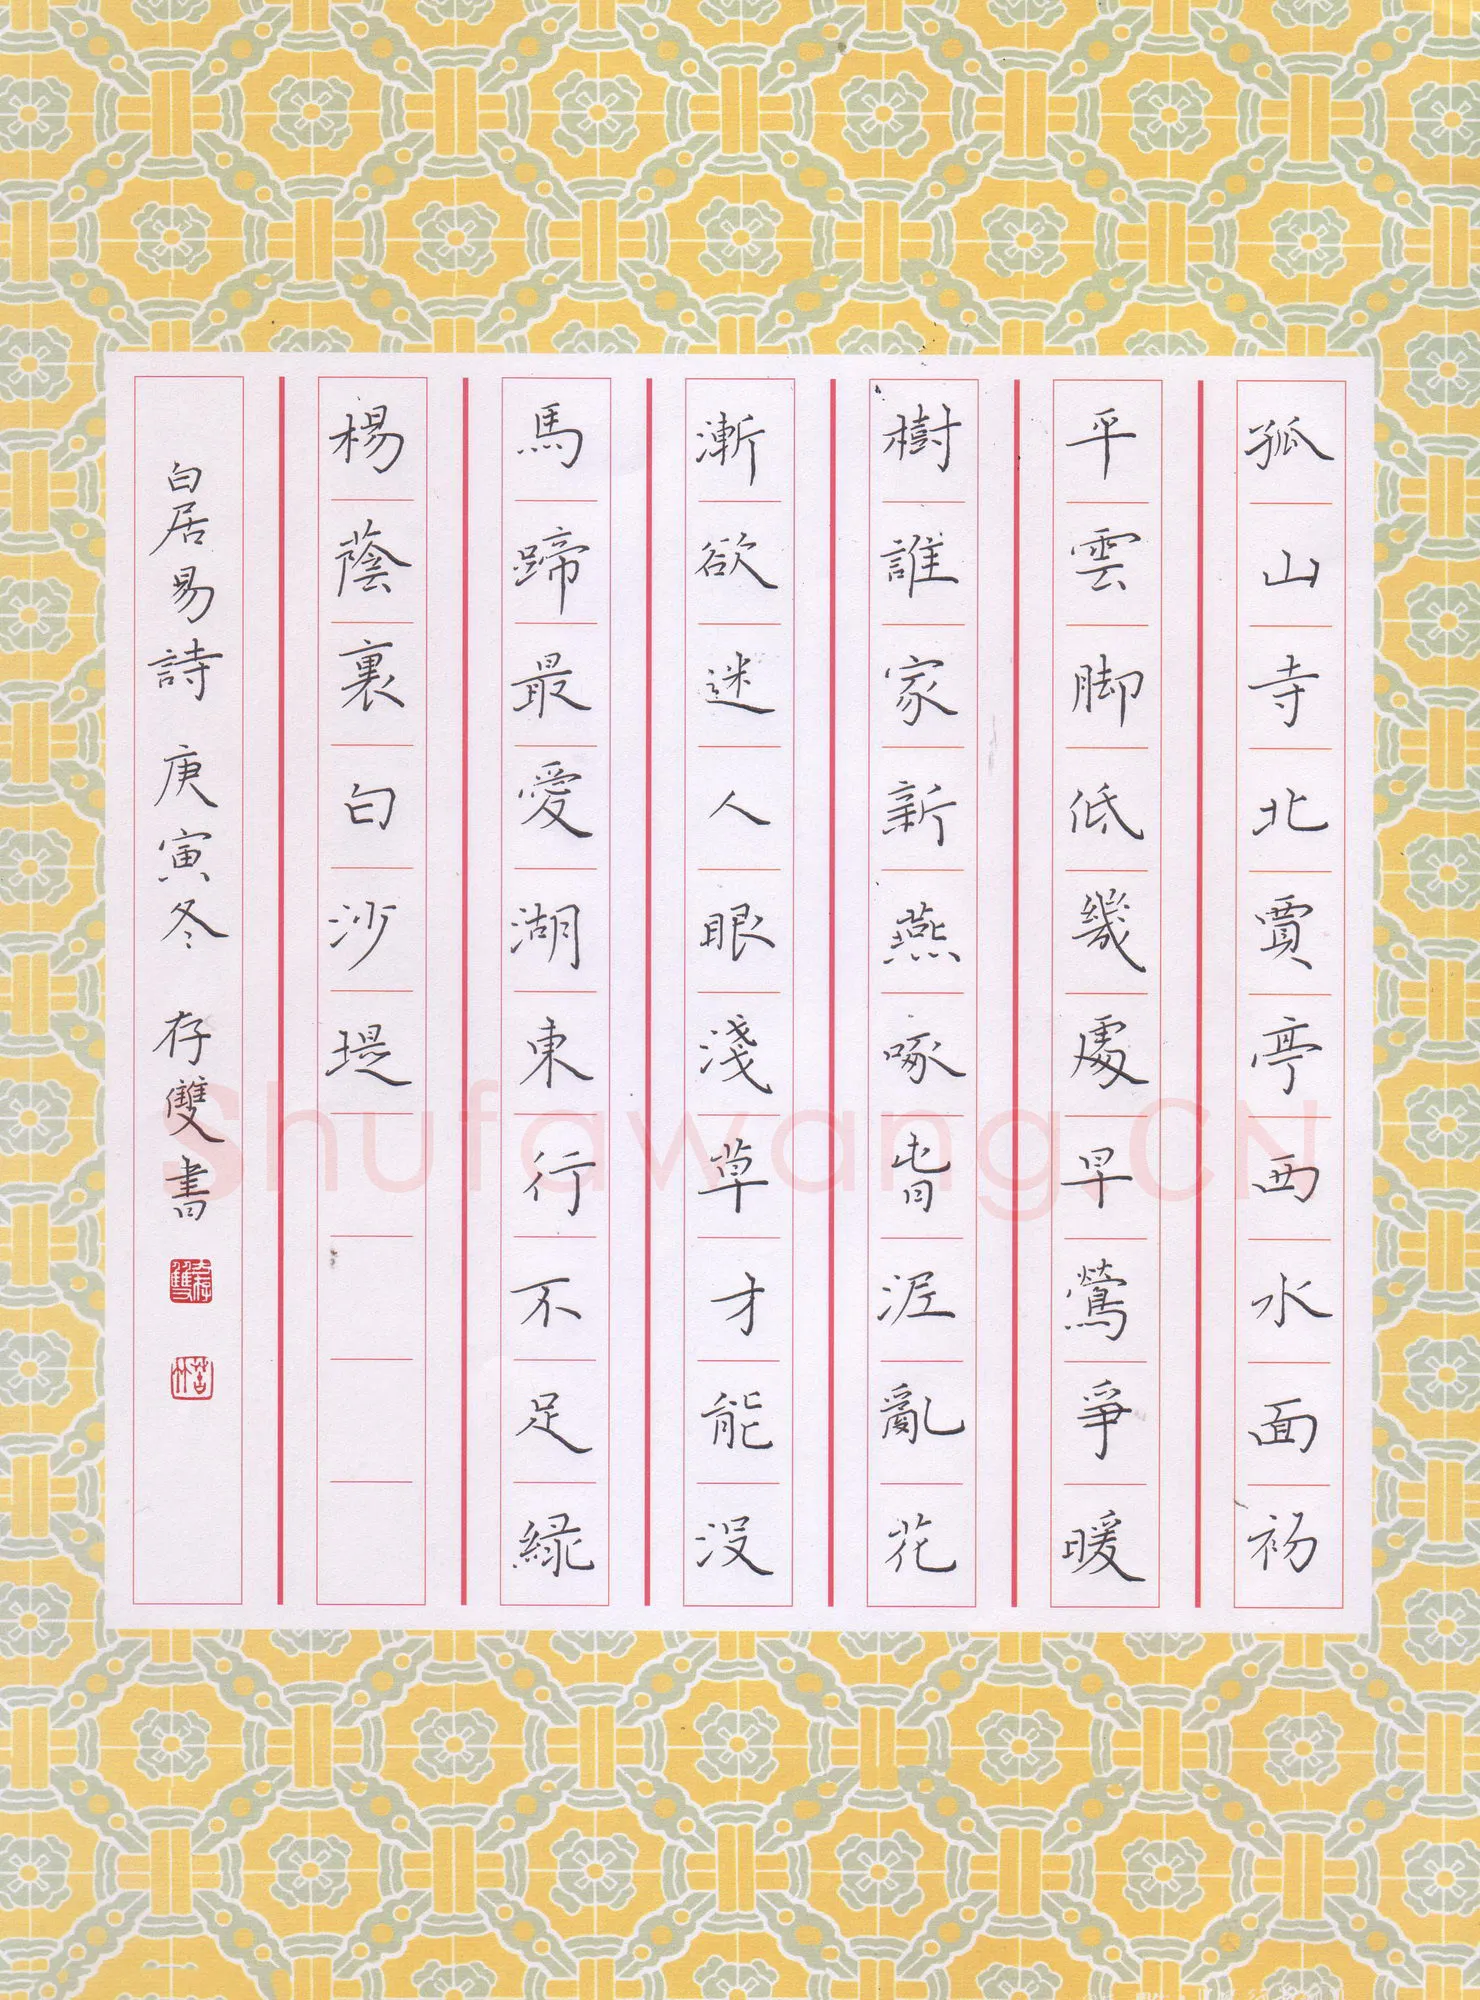 孤山寺北賈亭西水面初
平雲脚低幾處早鶯爭暖
樹誰家新燕啄旾泥亂花
漸欲迷人眼淺草才能沒
馬蹄最愛湖東行不足綠
楊蔭裏白沙堤
白居易詩 庚寅冬 存雙書
Shufawang.CN